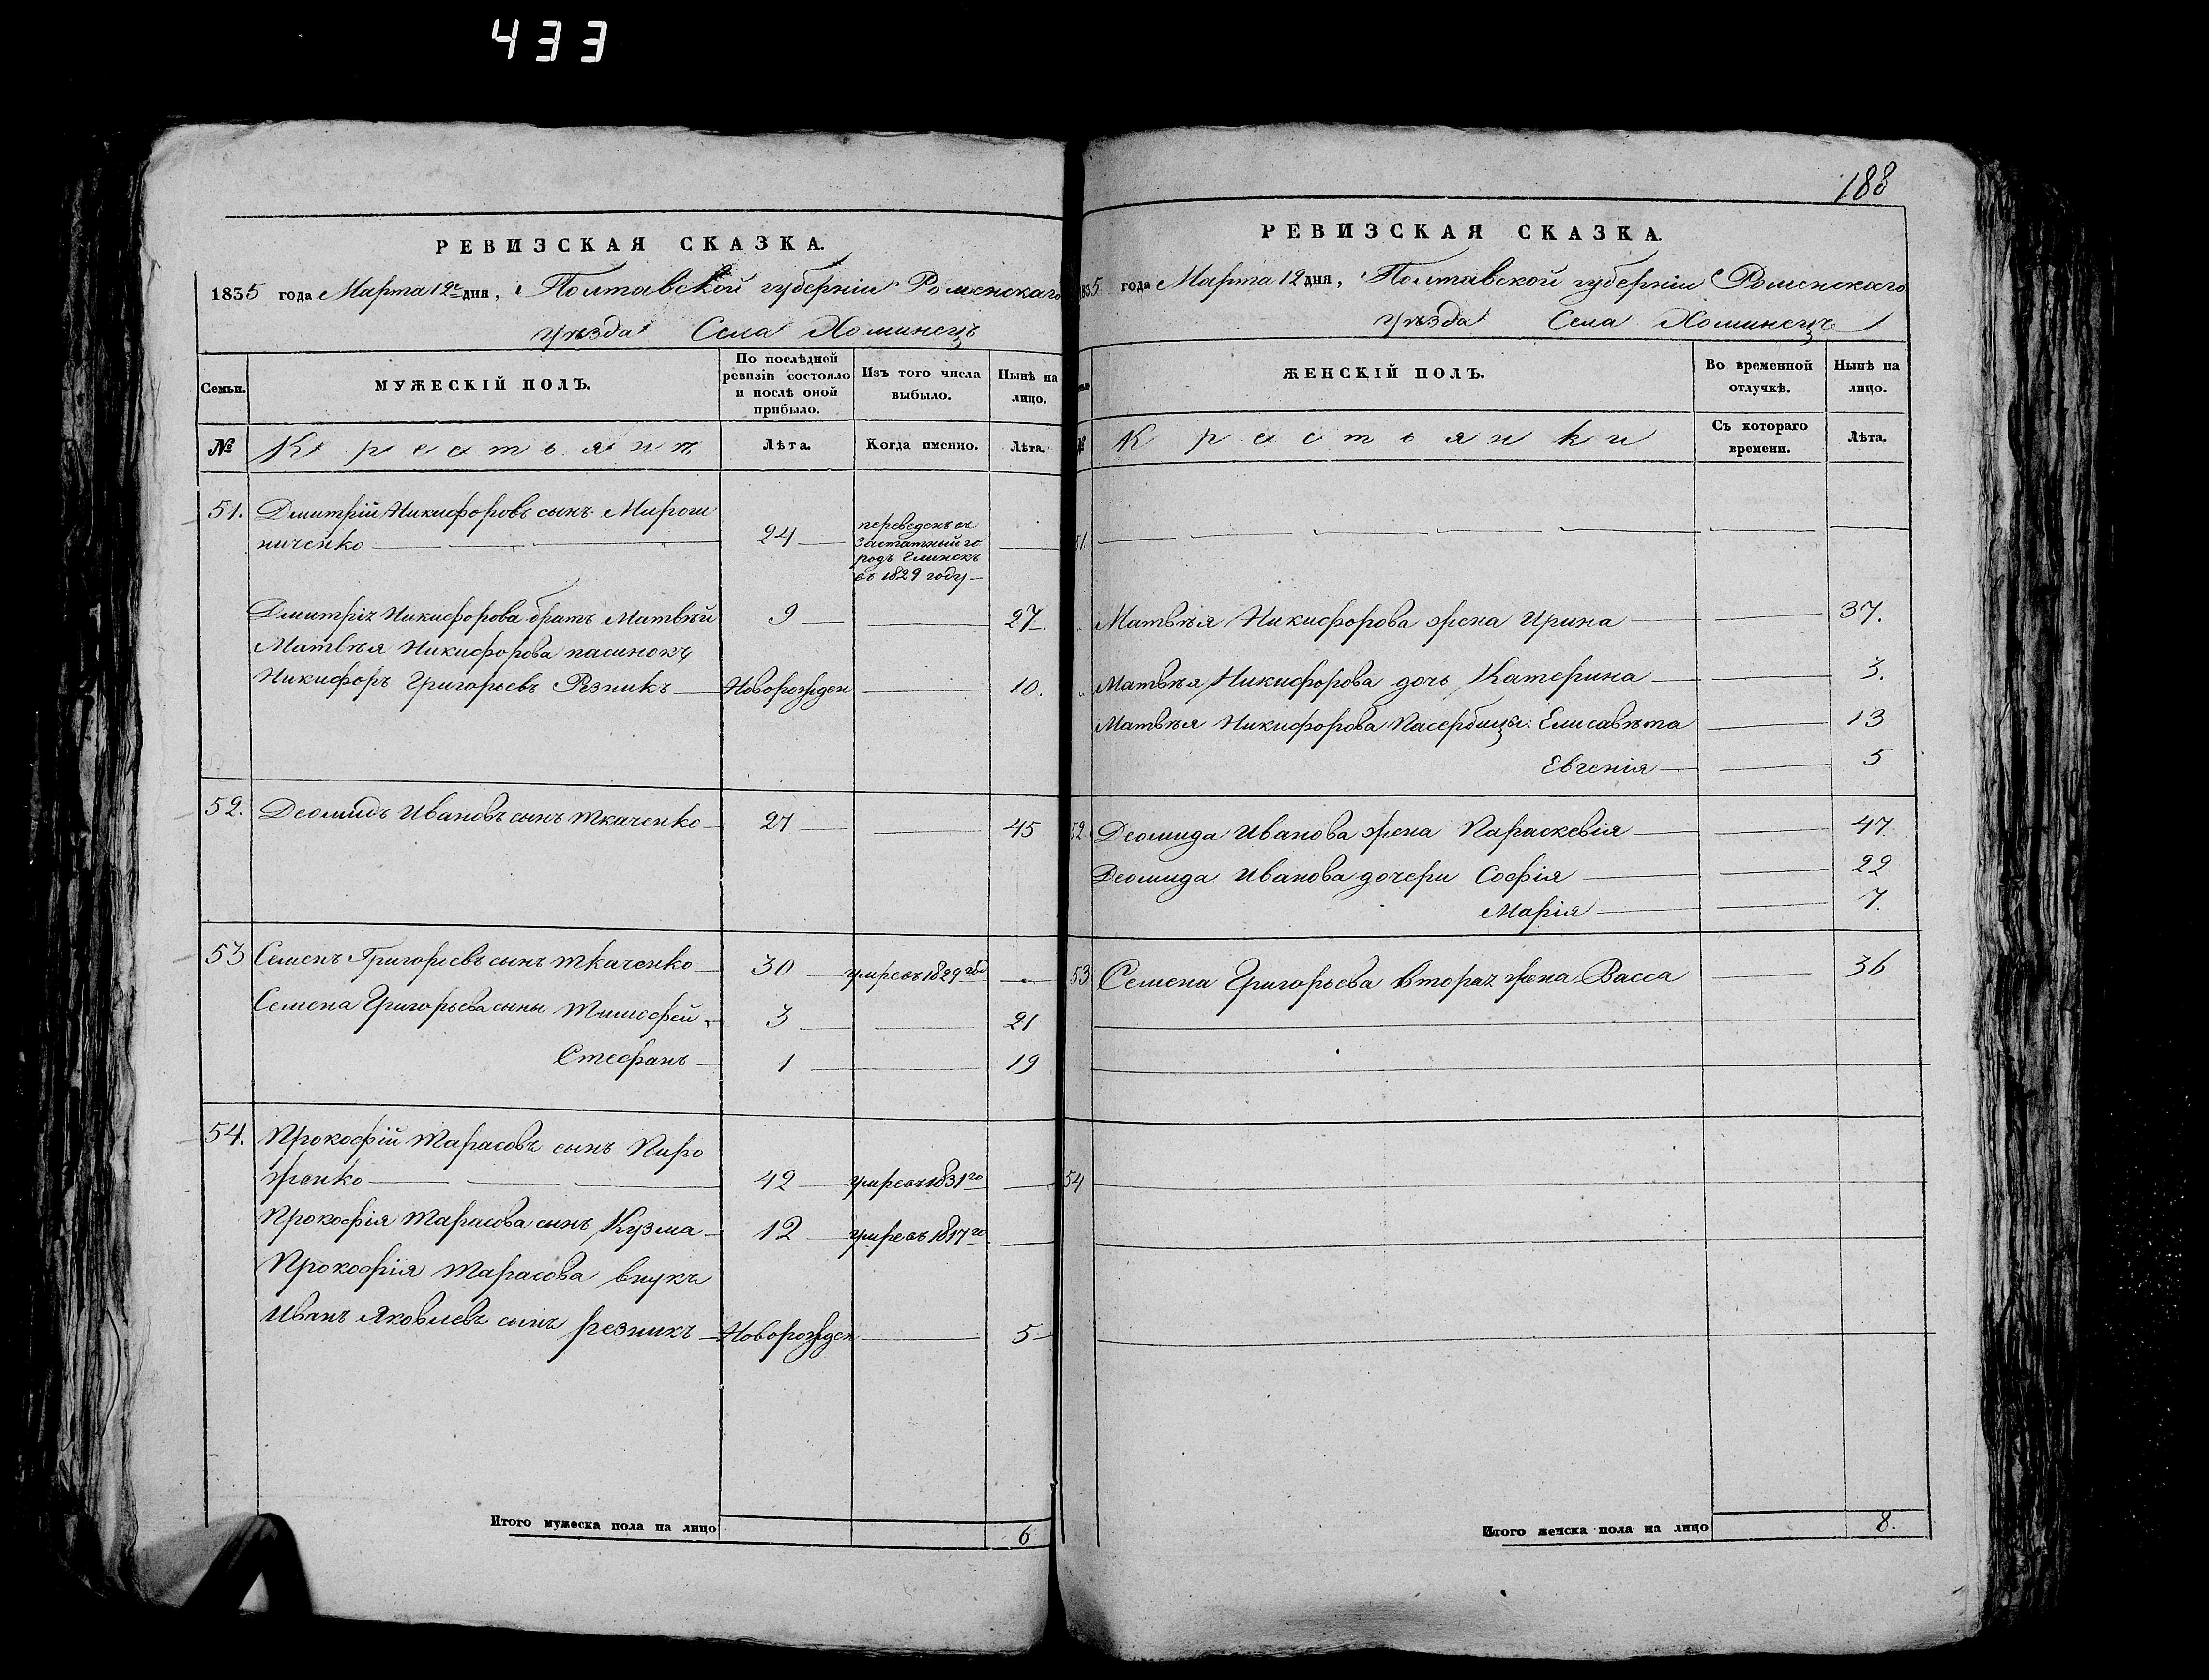 433
РЕВИЗСКАЯ СКАЗКА.
1835 года Марта 12го дня, Полтавской губерніи Роменскаго
уѣзда Села Хоминецъ
Семьи.
МУЖЕСКІЙ ПОЛЪ.
По послѣдней ревизіи состояло и послѣ оной прибыло.
Изъ того числа выбыло.
Нынѣ на лицо.
№
Крестьянъ
Лѣта.
Когда именно.
Лѣта.
51. Дмитрій Никифоровъ сынъ Мирош
ниченко 24 переведенъ въ
Заштатный го
родъ Глинскъ
въ 1829 году
Дмитрія Никифорова братъ Матвѣй 9 27.
Матвѣя Никифорова пасинокъ
Никифоръ Григорьевъ Рѣзникъ Новорожден 10.
52. Деомидъ Ивановъ сынъ Ткаченко 27 45
53 Семенъ Григорьевъ сынъ Ткаченко 30 умре въ 1829 год
Семена Григорьева сыны Тимофей 3 21
Стефанъ 1 19
54. Прокофій Тарасовъ сынъ Пиро
женко 42 умре въ 1831го
Прокофія Тарасова сынъ Кузма 12 умре въ 1817го
Прокофія Тарасова внукъ
Иванъ Яковлевъ сынъ резникъ Новорожден 5
Итого мужеска пола на лицо 6
188
РЕВИЗСКАЯ СКАЗКА.
1835 года Марта 12 дня, Полтавской губерніи Роменскаго
уѣзда Села Хоминецъ
ЖЕНСКІЙ ПОЛЪ.
Во временной отлучкѣ.
Нынѣ на лицо.
№
Крестьянки
Съ котораго времени.
Лѣта.
51.
Матвѣя Никифорова жена Ирина 37.
Матвѣя Никифорова дочь Катерина 3.
Матвѣя Никифорова Пасербицы: Елисавѣта 13
Евгенія 5
52. Деомида Иванова жена Параскевія 47
Деомида Иванова дочери Софія 22
Марія 7.
53 Семена Григорьева втораѧ жена Васса 36
54
Итого женска пола на лицо 8.